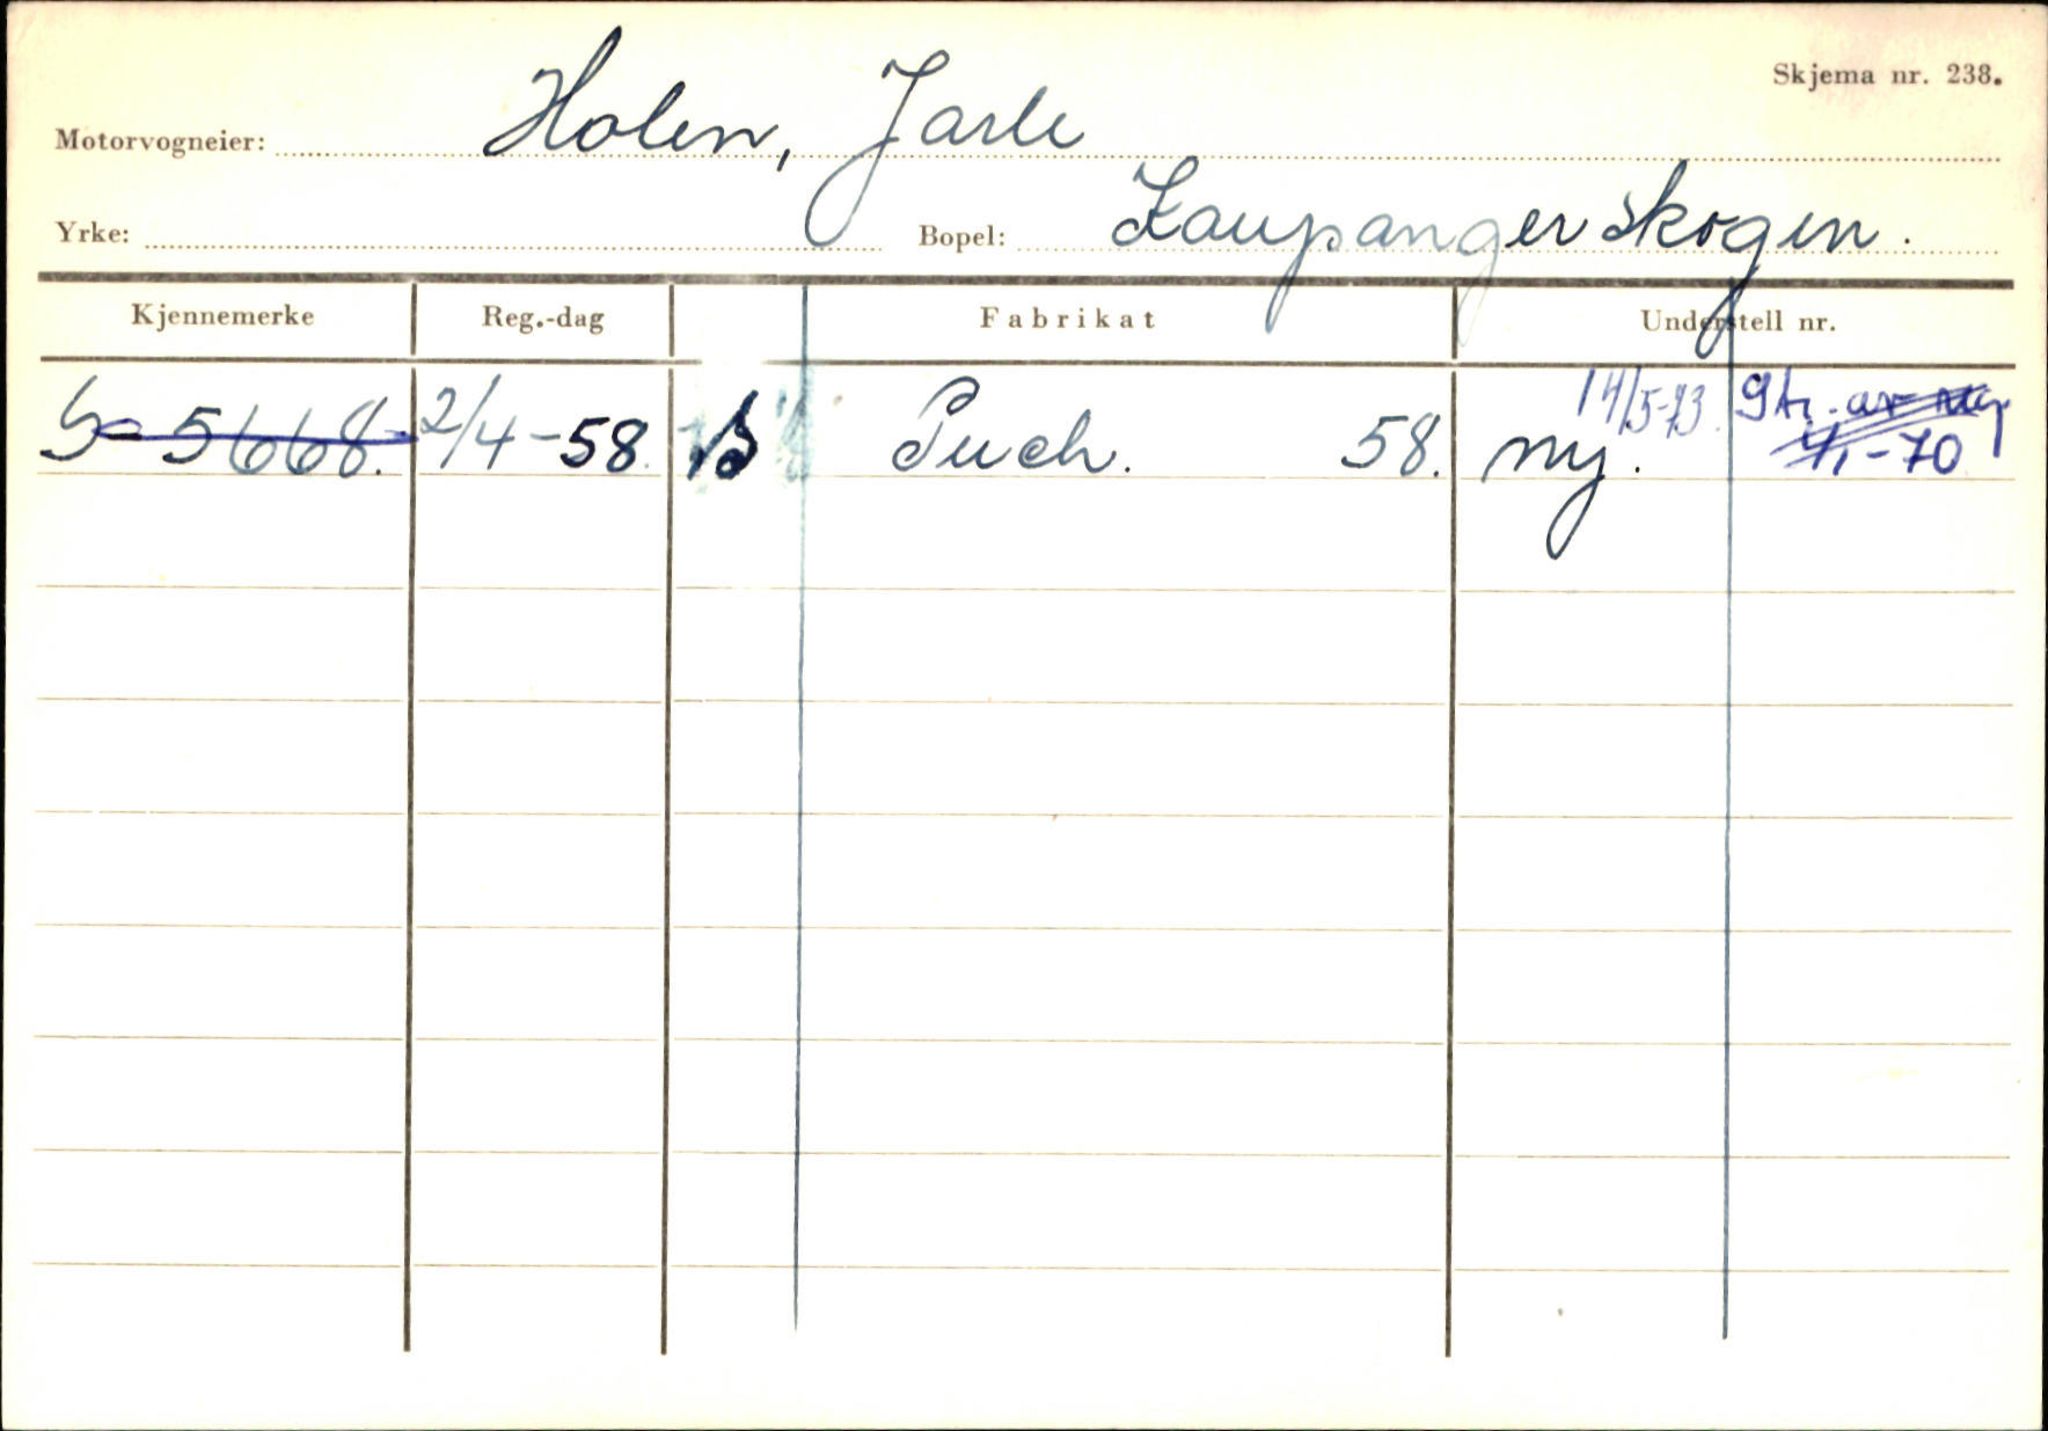 Skjema nr. 238.
Motorvogneier: Holen, Jarle
Yrke: Bopel: Kaupangerskogen.
Kjennemerke Reg.-dag Fabrikat Understell nr.
S-5668. 2/4-58. B Puch. 58. ny. 14/5-73. Str. av reg.
1/1-70